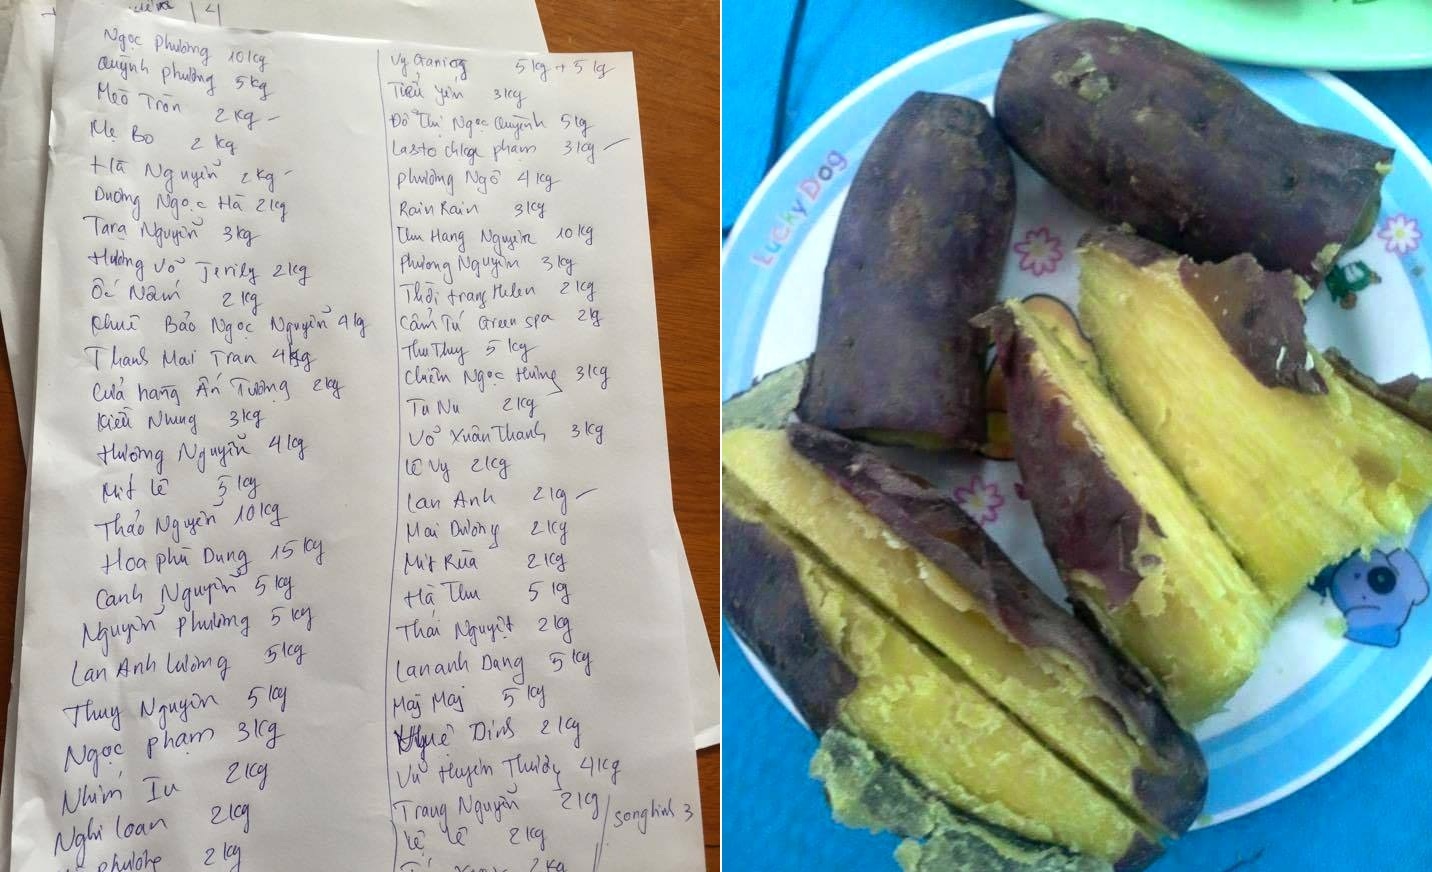 Ngọc Phương 10kg
Quỳnh Phương 5kg
Mèo Tròn 2kg -
Mẹ Bo 2kg
Hà Nguyễn 2kg -
Dương Ngọc Hà 2kg
Tara Nguyễn 3kg
Hương Võ Jerily 2kg
Ốc Năm 2kg
Khuê Bảo Ngọc Nguyễn 4kg
Thanh Mai Tran 4kg
Cửa hàng Ấn Tượng 2kg
Kiều Nhung 3kg
Hương Nguyễn 4kg
Mít Lê 5kg
Thảo Nguyễn 10kg
Hoa Phù Dung 15kg
Canh Nguyễn 5kg
Nguyễn Phương 5kg
Lan Anh Lương 5kg
Thuy Nguyễn 5kg
Ngọc phạm 3kg
Nhím Iu 2kg
Nghi Loan 2kg
Phương 2kg
Vy 5kg + 5kg
Tiểu Yến 3kg
Đỗ Thị Ngọc Quỳnh 5kg
phạm 3kg
Phương Ngô 4kg
Rain Rain 3kg
Thu Hang Nguyễn 10kg
Phương Nguyễn 3kg
Thời trang Helen 2kg
Cẩm Tú Green spa 2kg
Thu Thuy 5kg
Chiêm Ngọc Hưng 3kg
Tu Nu 2kg
Võ Xuân Thanh 3kg
Lê Vy 2kg
Lan Anh 2kg
Mai Dương 2kg
Mít Rùa 2kg
Hà Thu 5kg
Thái Nguyệt 2kg
Lananh Dang 5kg
5kg
Huê Dinh 2kg
Vũ Huyền Thuỳ 4kg
Trang Nguyễn 2kg
Lê 2kg
songlinh 3
2kg
Lucky Dog